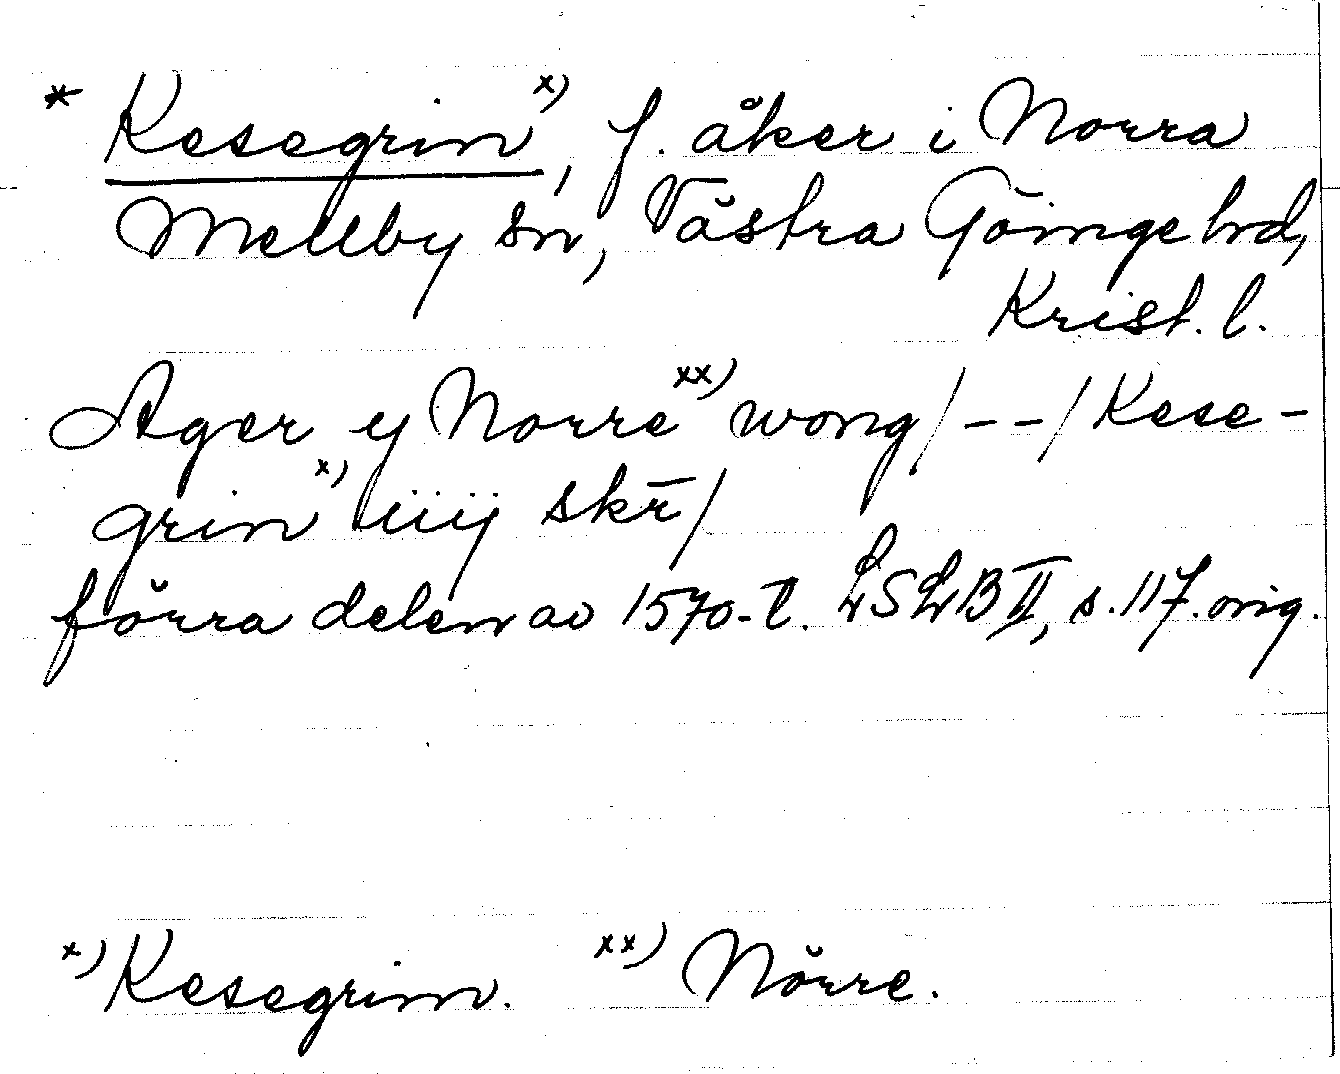 * Kesegrin x), f. åker i Norra
Mellby sn, Västra Göinge hrd,
Krist. l.
Ager y Norre xx) wong/--/Kese-
grin x) iiij skr̄/
förra delen av 1570-t. LSLB II, s. 117. orig.
x) Kesegrim. xx) Nörre.